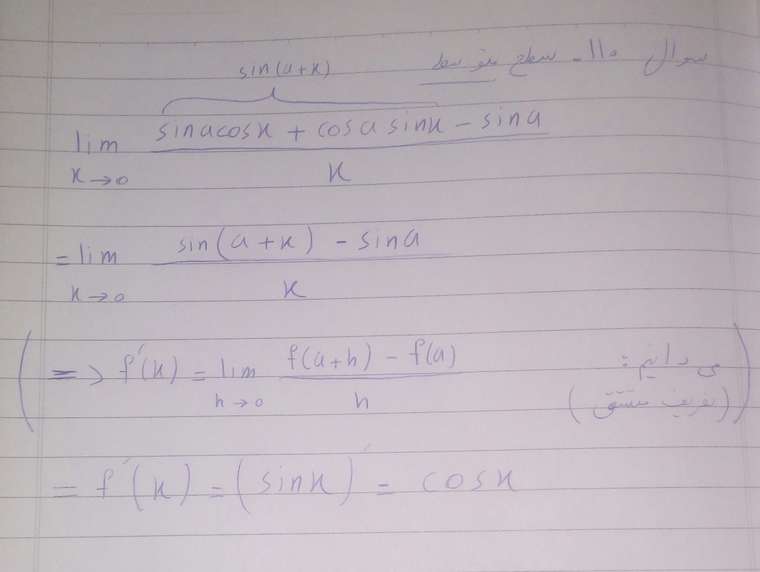 سوال ۱۱۰ـ سطح متوسط
sin(a+x)
lim x→0 (sinacosx + cosasinx - sina) / x
= lim x→0 (sin(a+x) - sina) / x
( => f'(x) = lim h→0 (f(a+h) - f(a)) / h می دانیم :
(تعریف مشتق) )
= f'(x) = (sinx)' = cosx